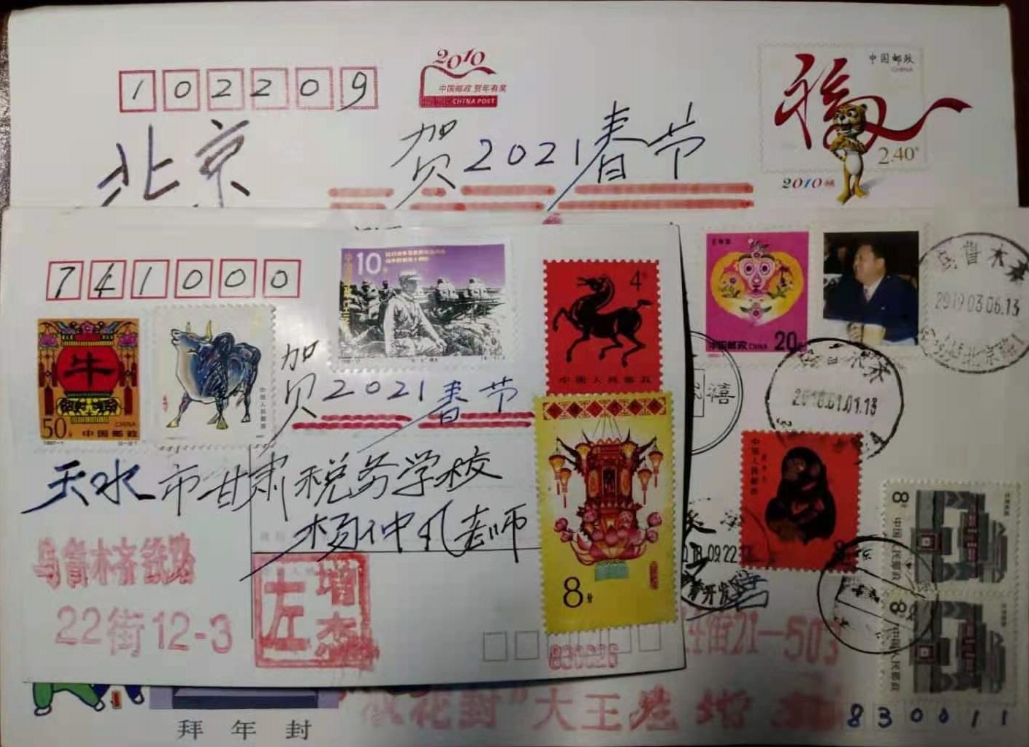 102209
2010
中国邮政 贺年有奖
CHINA POST
中国邮政
CHINA
2.40元
2010
北京
贺2021春节
741000
10分
4分
中国人民邮政
20分
中国邮政 CHINA
2019.03.06.13
2018.01.01.13
牛
50分
CHINA
中国邮政
贺2021春节
禧
天水市甘肃税务学校
杨仲凡老师
中国人民邮政
8分
8分
中国人民邮政
8分
中国人民邮政
乌鲁木齐铁路
22街12-3
左增杰
8分
830026
街21-503
花封"大王
拜年封
830011